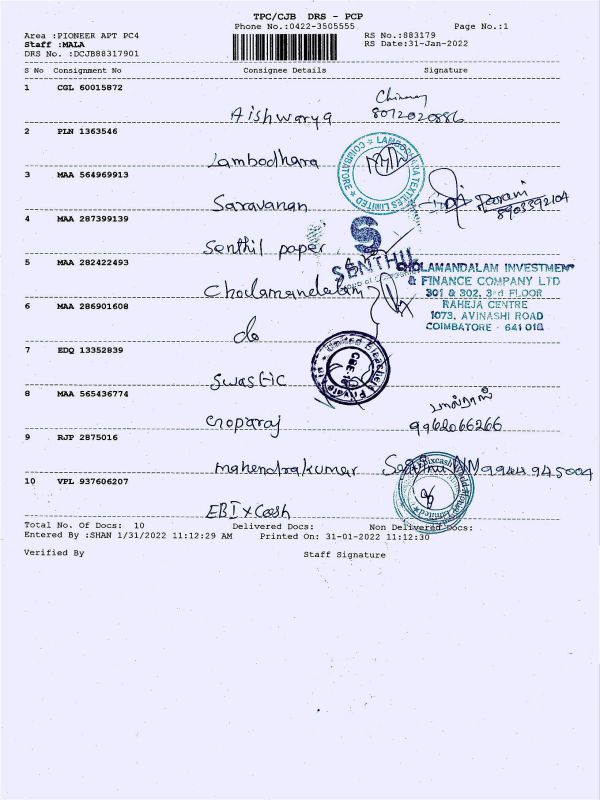 TPC/CJB DRS - PCP
Phone No.:0422-3505555
Page No.:1
Area :PIONEER APT PC4
RS No.:883179
Staff :MALA
RS Date:31-Jan-2022
DRS No. :DCJB88317901
S No Consignment No Consignee Details Signature
1 CGL 60015872
Aishwarya
8072020886
2 PLN 1363546
Lambodhara
LAMBODHARA TEXTILES LIMITED
COIMBATORE
3 MAA 564969913
Saravanan
8903392104
4 MAA 287399139
Senthil paper
SENTHIL
5 MAA 282422493
CHOLAMANDALAM INVESTMEN
& FINANCE COMPANY LTD
301 & 302, 3rd FLOOR
RAHEJA CENTRE
1073, AVINASHI ROAD
COIMBATORE - 641 018
6 MAA 286901608
do
7 EDQ 13352839
Swastic
8 MAA 565436774
9962066266
9 RJP 2875016
mahendrakumar
9944945004
10 VPL 937606207
EBIXCash
Total No. Of Docs: 10 Delivered Docs: Non Delivered Docs:
Entered By :SHAN 1/31/2022 11:12:29 AM Printed On: 31-01-2022 11:12:30
Verified By Staff Signature